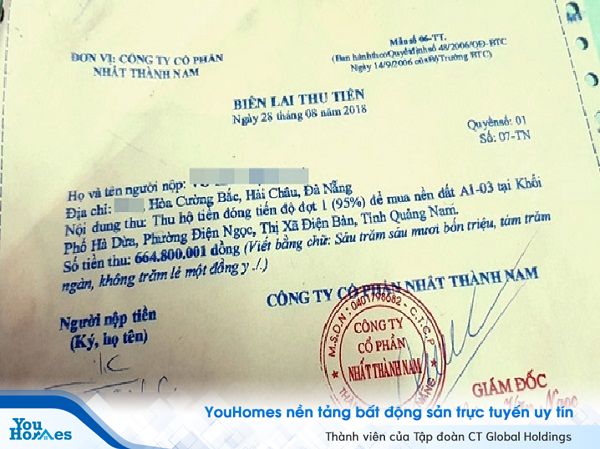 ĐƠN VỊ: CÔNG TY CỔ PHẦN
NHẤT THÀNH NAM
Mẫu số 06-TT.
(Ban hành theo Quyết định số 48/2006/QĐ-BTC
Ngày 14/9/2006 của Bộ Trưởng BTC)
BIÊN LAI THU TIỀN
Ngày 28 tháng 08 năm 2018
Quyển số: 01
Số: 07-TN
Họ và tên người nộp:
Địa chỉ: , Hòa Cường Bắc, Hải Châu, Đà Nẵng
Nội dung thu: Thu hộ tiền đóng tiến độ đợt 1 (95%) để mua nền đất A1-03 tại Khối
Phố Hà Dừa, Phường Điện Ngọc, Thị Xã Điện Bàn, Tỉnh Quảng Nam.
Số tiền thu: 664.800.001 đồng (Viết bằng chữ: Sáu trăm sáu mươi bốn triệu, tám trăm
ngàn, không trăm lẻ một đồng y ./.)
CÔNG TY CỔ PHẦN NHẤT THÀNH NAM
Người nộp tiền
(Ký, họ tên)
M.S.D.N: 0401798682 - C.T.C.P
CÔNG TY
CỔ PHẦN
NHẤT THÀNH NAM
GIÁM ĐỐC
You
Homes
YouHomes nền tảng bất động sản trực tuyến uy tín
Thành viên của Tập đoàn CT Global Holdings